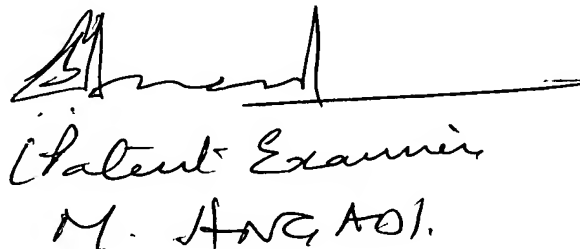 (Patent Examiner
M. ANGADI.